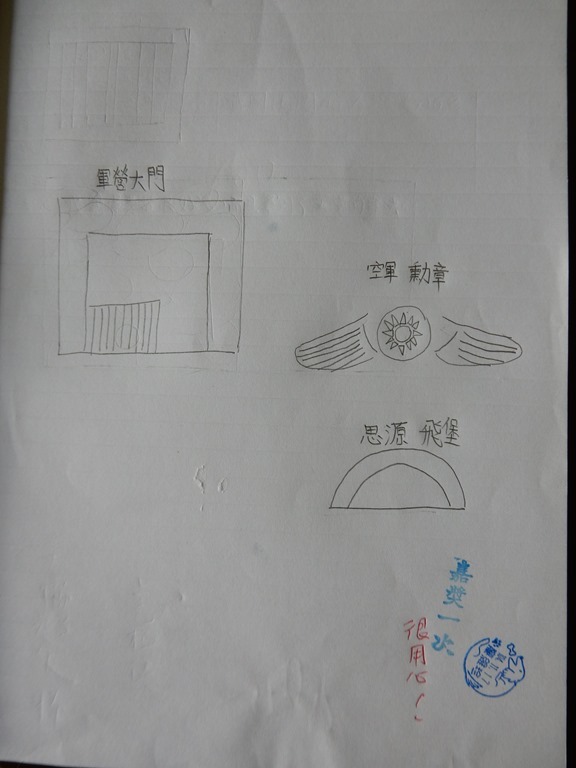 軍營大門
空軍 勳章
思源 飛堡
嘉獎一次
很用心！